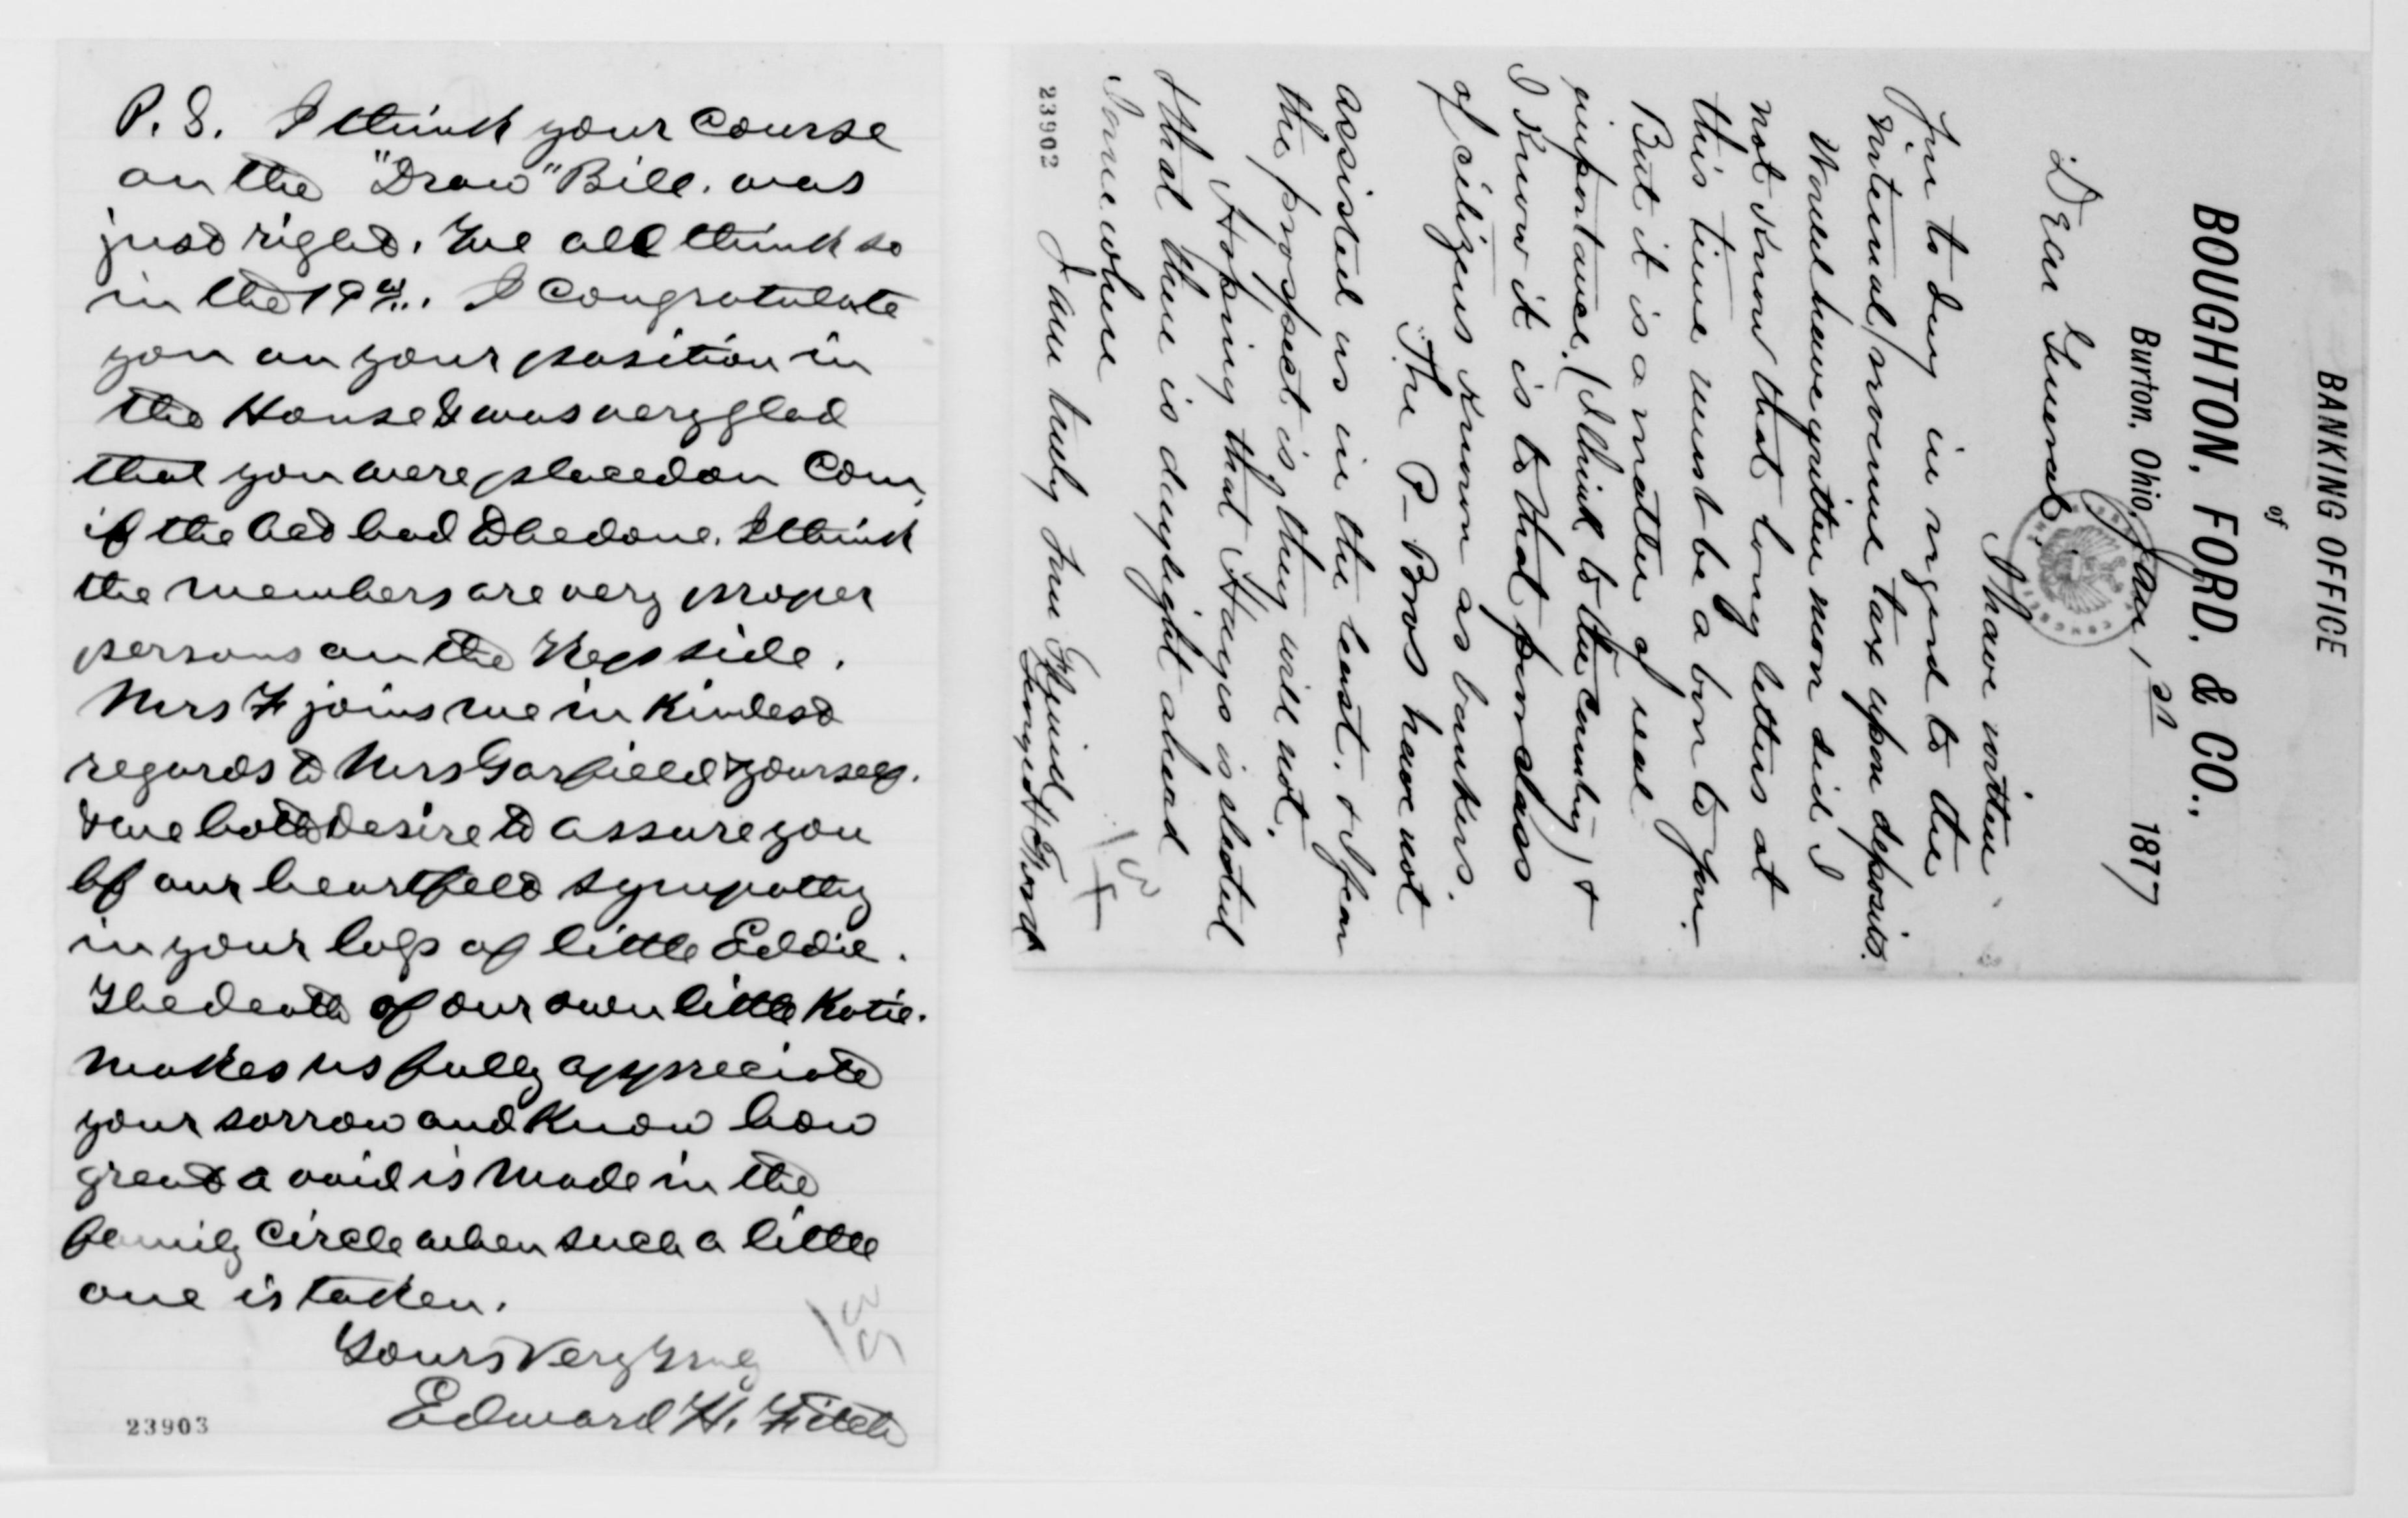 P.S. I think your course
on the "Draw" Bill. was
just right. We all think so
in the 19th. I congratulate
you on your position in
the House & was very glad
that you were placed on Com,
if the act had to be done. I think
the members are very proper
persons on the Rep side.
Mrs F joins me in kindest
regards to Mrs Garfield & yourself.
& we both desire to assure you
of our heartfelt sympathy
in your loss of little Eddie.
The death of our own little Katie.
makes us fully appreciate
your sorrow and know how
great a void is made in the
family circle when such a little
one is taken.
Yours Very Truly
Edward H. Fitch
23903
BANKING OFFICE
of
BOUGHTON, FORD, & CO.,
Burton, Ohio, Jan, 1st 1877
Dear General.
I have written
you to day in regard to the
internal revenue tax upon deposits.
Would have written more did I
not know that long letters at
this time must be a bore to you.
But it is a matter of real
importance. (I think to the country) &
I know it is to that poor class
of citizens known as bankers.
The P- Bros have not
assisted us in the least. & I fear
the prospect is they will not.
Hoping that Hayes is elected
& that there is daylight ahead
Somewhere
I am truly your friend
H Ford
23902